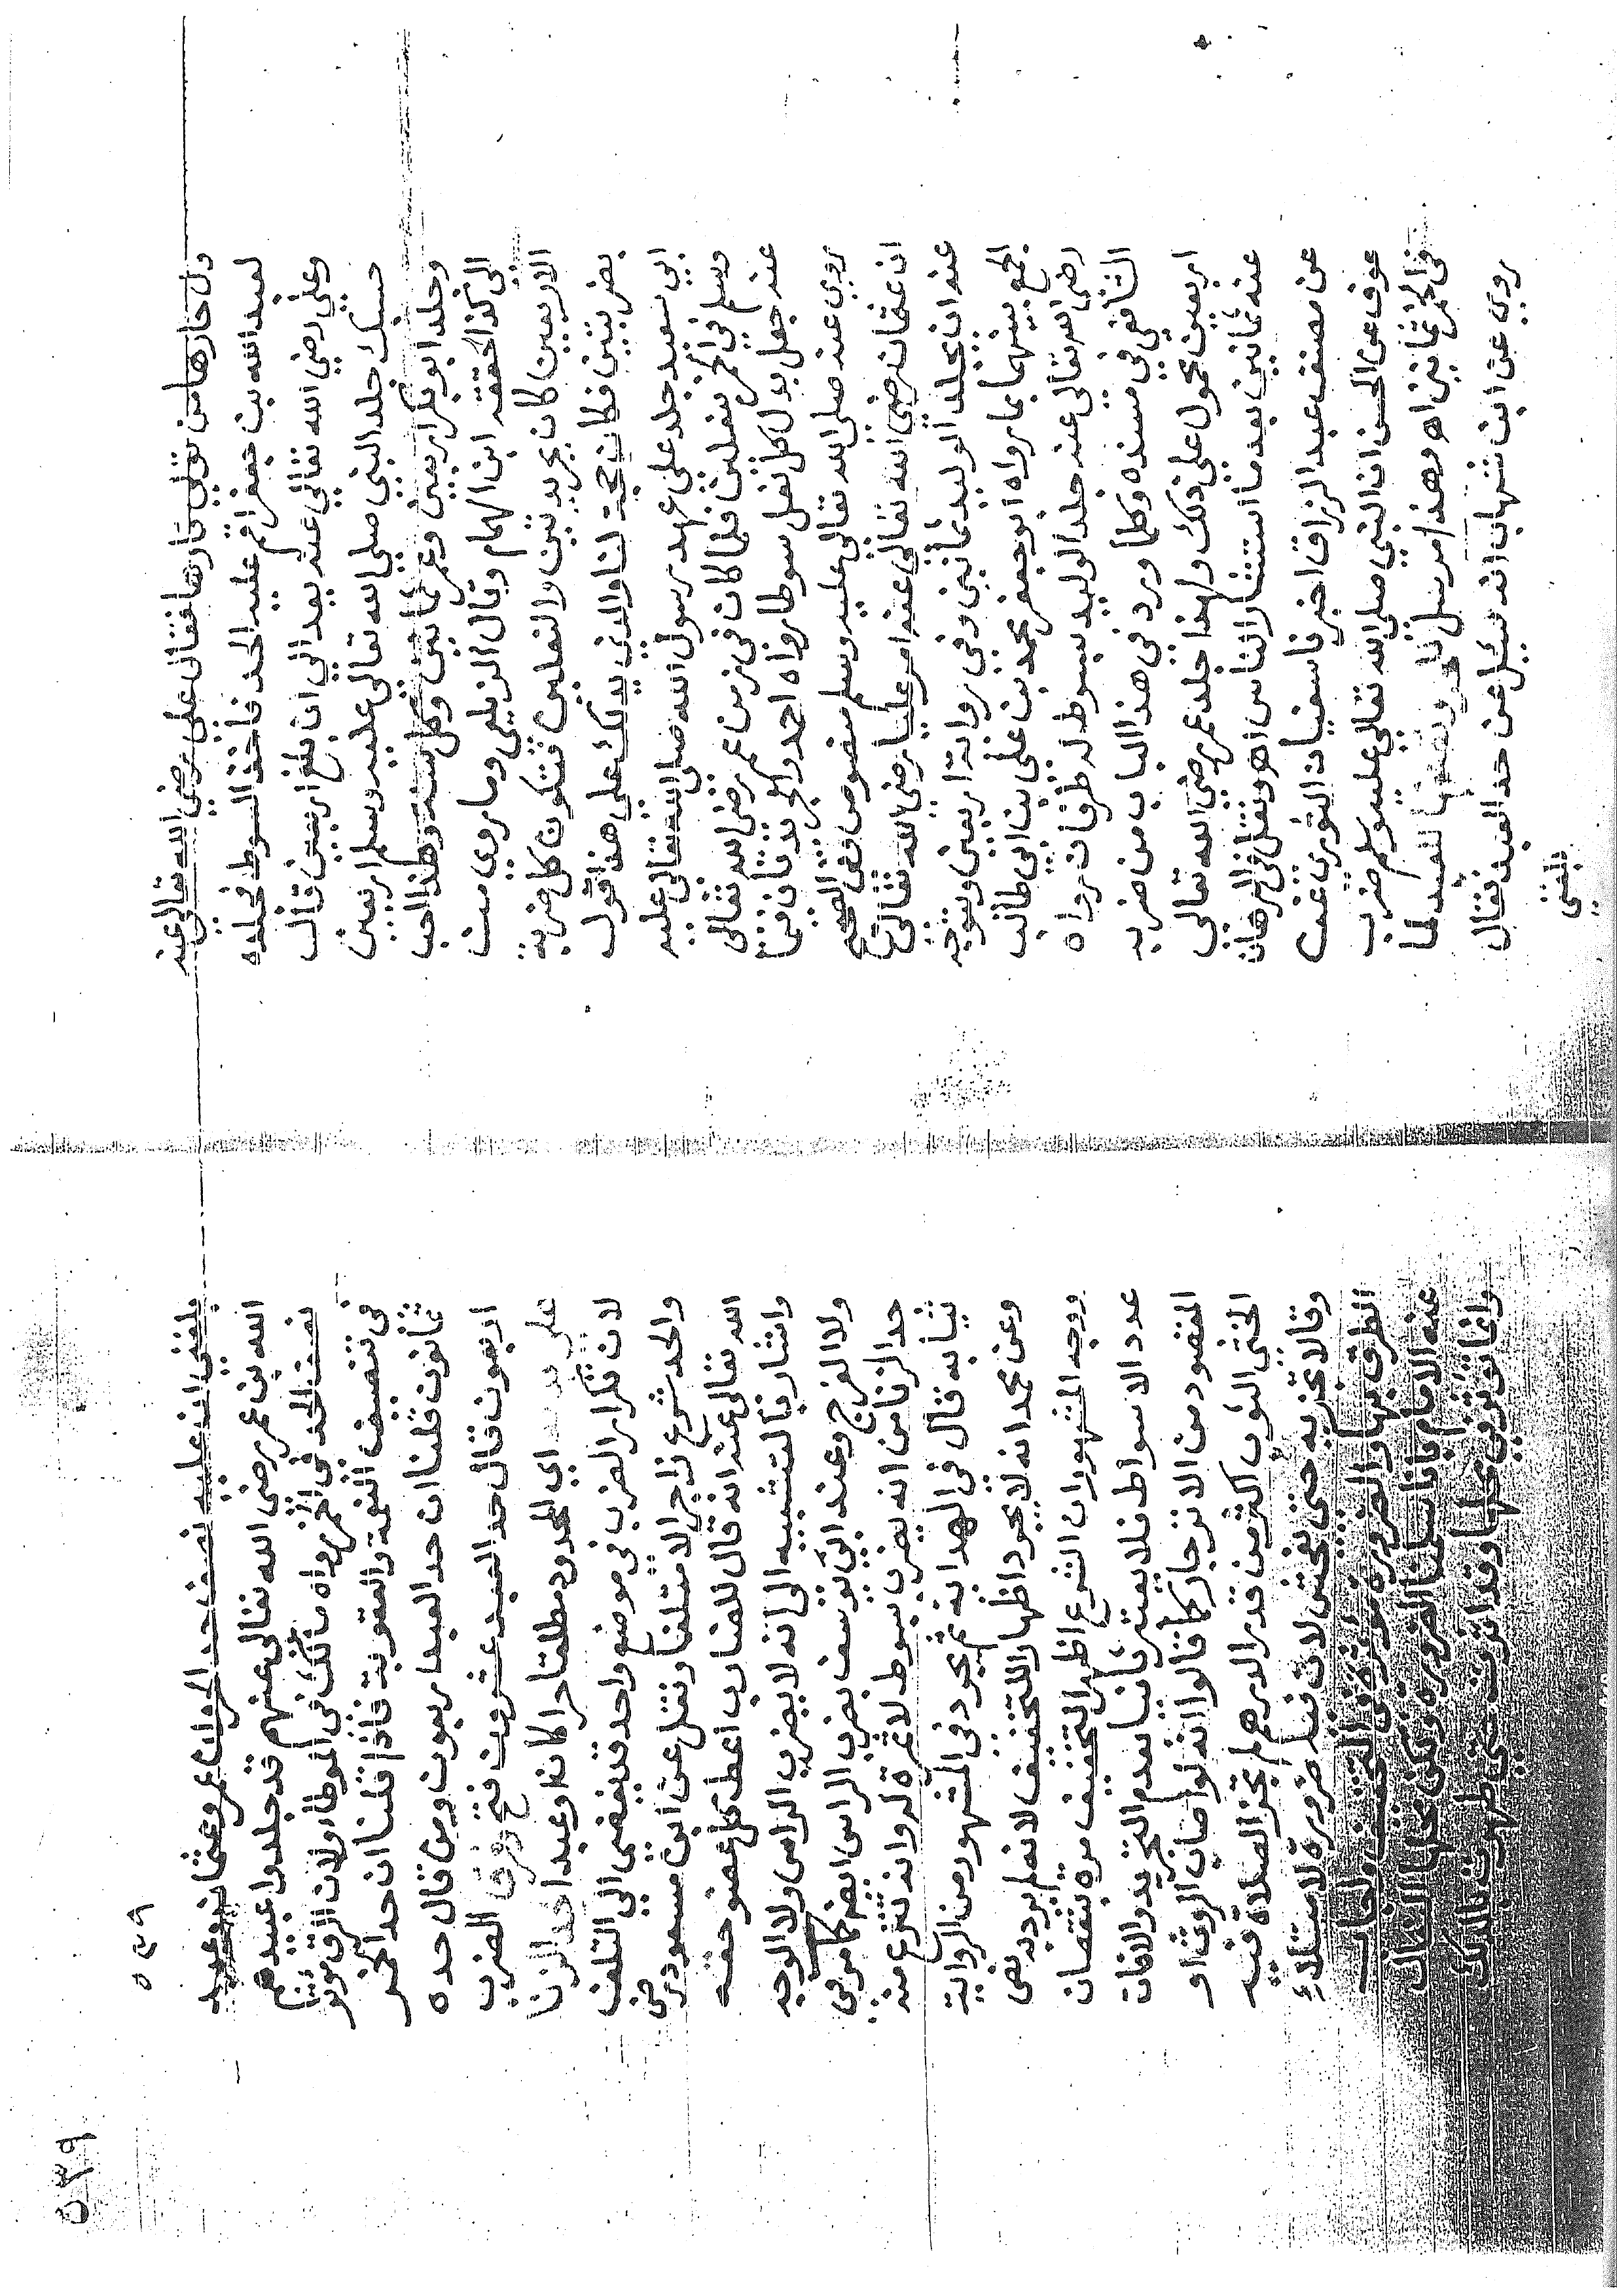 ول حارها من تولي قارها فقال علي رضي الله تعالى عنه
لعبد الله بن جعفر اقم عليه الحد فأخذ السوط فجلده
وعلي رضي الله تعالى عنه يعد الي ان بلغ اربعين قال
حسبك جلد النبي صلى الله تعالى عليه وسلم اربعين
وجلد ابو بكر اربعين وعمر ثمانين وكل سنة وهذا احب
الي كذا حققه ابن الهمام وقال الزيلعي وما روي من
الاربعين كان بجريدتين والنعلين فتكون كل ضربة
بضربتين فكان حجة لنا والذي يدلك على هذا قول
ابي سعيد جلد على عهد رسول الله صلى الله تعالى عليه
وسلم في الخمر بنعلين فلما كان في زمن عمر رضي الله تعالى
عنه جعل بدل كل نعل سوطا رواه احمد والجريدتان فيما
روي عنه صلى الله تعالى عليه وسلم منصوص ففي الصحيح
ان عثمان رضي الله تعالى عنه امر عليا رضي الله تعالى
عنه ان يجلد الوليد ثمانين وفي رواية اربعين ويتوجه
الجمع بينهما بما رواه ابو جعفر محمد بن علي بن ابي طالب
رضي الله تعالى عنه جلد الوليد بسوط له طرفان رواه
الشافعي في مسنده وكلما ورد في هذا الباب من ضرب
اربعين محمول على ذلك ولهذا جلد عمر رضي الله تعالى
عنه ثمانين بعد ما استشار الناس اهـ ونقل في البرهان
عن مصنف عبد الرزاق اخبرنا سفيان الثوري عن
عوف عن الحسن ان النبي صلى الله تعالى عليه وسلم ضرب
في الخمر ثمانين اهـ وهذا مرسل ونصفها للعبد لما
روي عن ابن شهاب انه سئل عن حد العبد فقال
بلغني
٥٣٩
بلغني ان عليه نصف حد الحر وان عمر وعثمان وعبد
الله بن عمر رضي الله تعالى عنهم قد جلدوا عبيدهم
نصف الحد في الخمر رواه مالك في الموطا ولان الرق مؤثر
في تنصيف النعمة والعقوبة فاذا قلنا ان حد الخمر
ثمانون قلنا ان حد العبد اربعون ومن قال حده
اربعون قال حد العبد عشرون فتح وفرق الضرب
على بدنه اي المحدود مطلقا حرا كان او عبدا كحد الزنا
لان تكرار الضرب في موضع واحد قد يفضي الي التلف
والحد شرع زاجرا لا متلفا ونقل عن ابن مسعود رضي
الله تعالى عنه انه قال للضارب اعط كل عضو حقه
واشار بالتشبيه الى انه لا يضرب الراس ولا الوجه
ولا الفرج وعند ابي يوسف يضرب الراس ايضا كما مر في
حد الزنا من انه يضرب بسوط لا ثمرة له وانه تنزع عنه
ثيابه قال في الهداية ثم يجرد في المشهور من الرواية
وعن محمد انه لا يجرد اظهارا للتخفيف لانه لم يرد به نص
ووجه المشهور ان الشرع اظهر التخفيف مرة بنقصان
عدد الاسواط فلا يعتبر ثانيا بعدم التجريد والا فات
المقصود من الانزجار كما قالوا انه لو اصاب الروث او
الخثي الثوب اكثر من قدر الدرهم لم تجز الصلاة فيه
وقالا تجزيه حتى يفحش لان فيه ضرورة لامتلاء
الطرق بها والضرورة مؤثرة في التخفيف واجاب
عنه الامام باننا سلمنا الضرورة ولكن محلها النعال
وانما تؤثر في محلها وقد اثرت حتى طهرت بالدلك